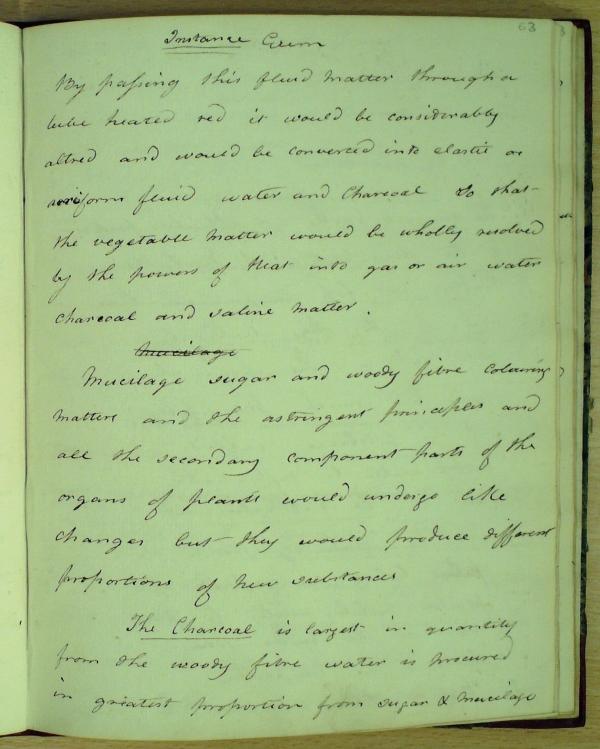 63
Instance Gum
By passing this fluid matter through a
tube heated red it would be considerably
altred and would be converced into elastic or
aeriform fluid water and Charcoal So that
the vegetable matter would be wholly resolved
by the powers of Heat into gas or air water
Charcoal and saline matter.
Mucilage
Mucilage sugar and woody fibre Colouring
matters and the astringent principles and
all the secondary component parts of the
organs of plants would undergo like
Changes but they would produce different
proportions of new substances
The Charcoal is largest in quantity
from the woody fibre water is procured
in greatest proportion from sugar & mucilage